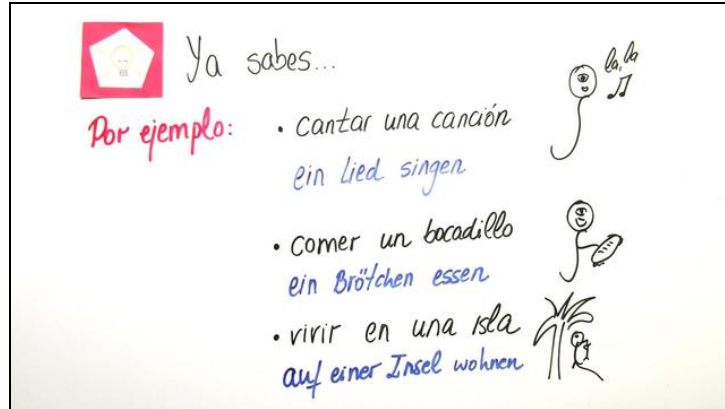 Ya sabes...
la, la
Por ejemplo: • cantar una canción
ein Lied singen
• comer un bocadillo
ein Brötchen essen
• vivir en una isla
auf einer Insel wohnen